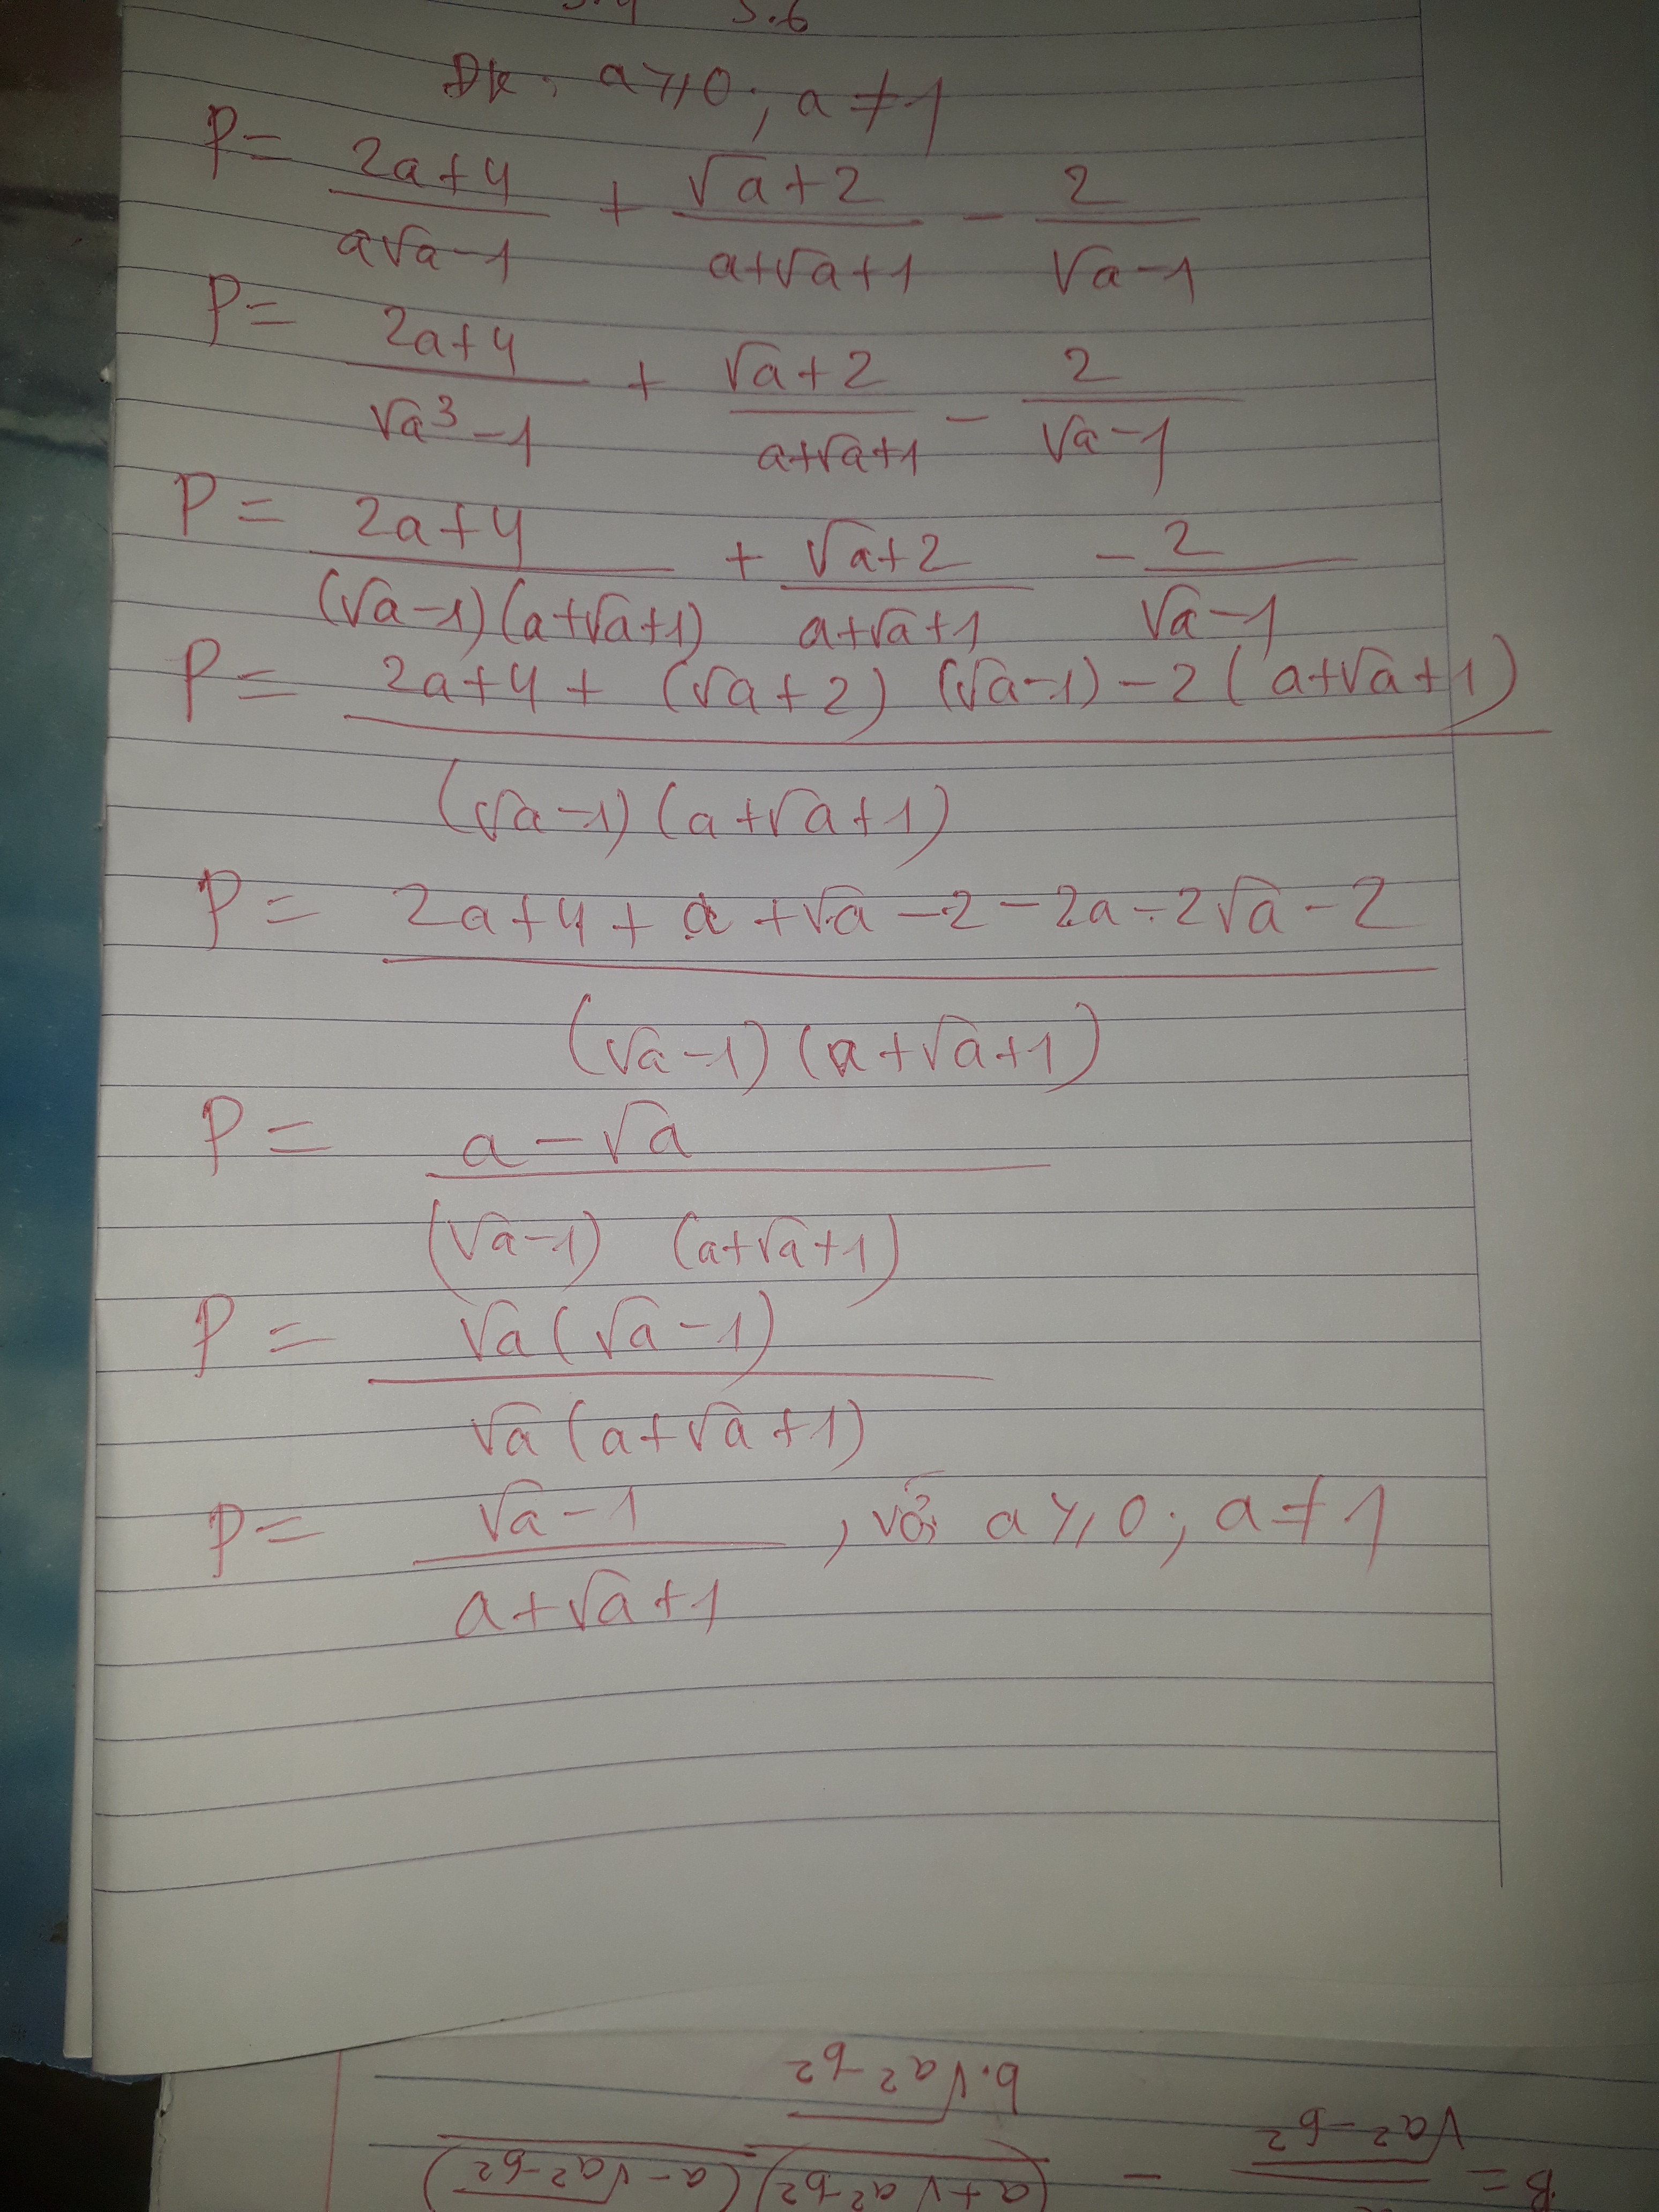 5.6
Đk: a ⩾ 0; a ≠ 1
P = (2a+4)/(a√a-1) + (√a+2)/(a+√a+1) - 2/(√a-1)
P = (2a+4)/(√a³-1) + (√a+2)/(a+√a+1) - 2/(√a-1)
P = (2a+4)/((√a-1)(a+√a+1)) + (√a+2)/(a+√a+1) - 2/(√a-1)
P = (2a+4+(√a+2)(√a-1)-2(a+√a+1))/((√a-1)(a+√a+1))
P = (2a+4+a+√a-2-2a-2√a-2)/((√a-1)(a+√a+1))
P = (a-√a)/((√a-1)(a+√a+1))
P = (√a(√a-1))/(√a(a+√a+1))
P = (√a-1)/(a+√a+1), với a ⩾ 0; a ≠ 1
b.√a²-b²
√a²-b²
B = - (a+√a²-b²)(a-√a²-b²)